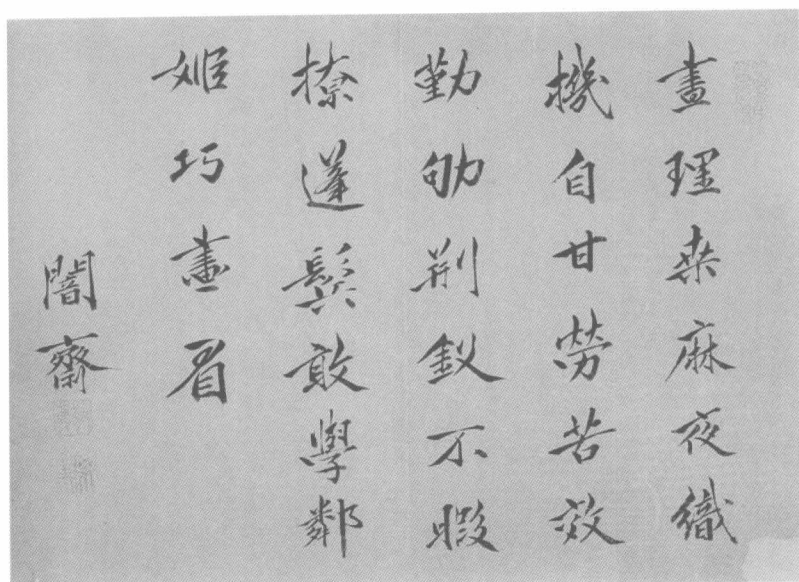 晝理桑麻夜織
機自甘勞苦效
勤劬荊釵不暇
撩蓬鬢敢學鄰
姬巧畫眉
闇齋